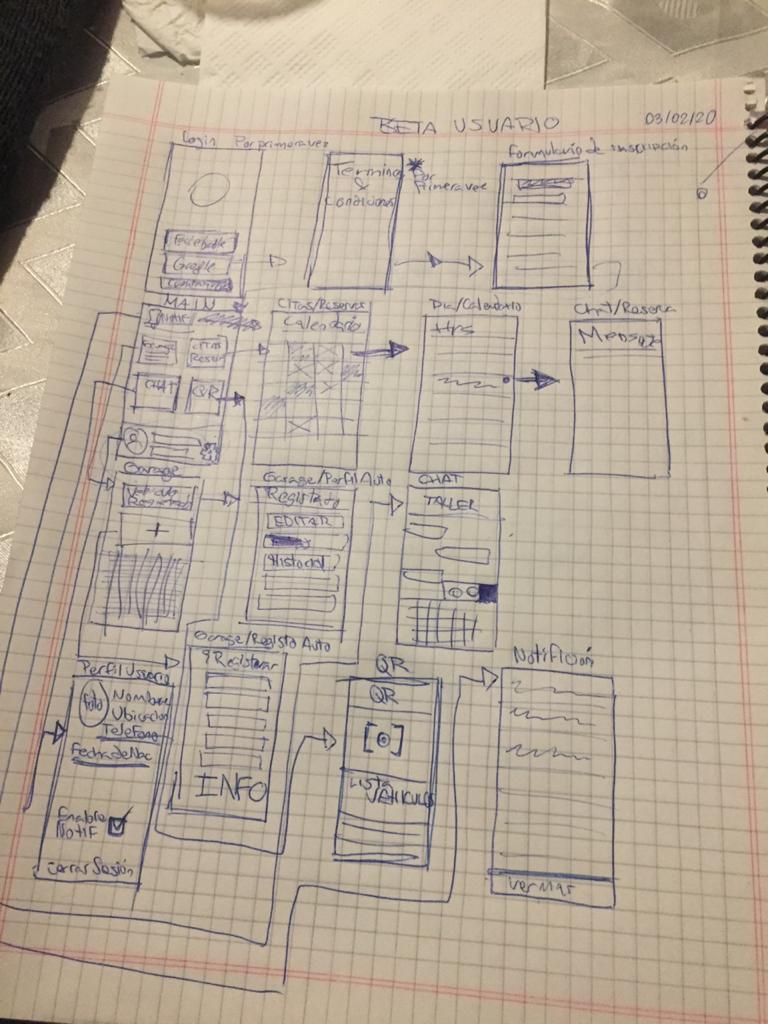 BETA USUARIO
03/02/20
Login Por primera vez
Termino
&
Condiciones
Por
Primera vez
Formulario de inscripción
Facebook
Google
MAIN
CITAS
Reserv
CHAT
QR
Citas/Reserva
Calendario
Dia/Calendario
Hrs
Chat/Reserva
Mensaje
Garage
+
Garage/Perfil Auto
Registrato
EDITAR
Historial
CHAT
TALLER
Perfil Usuario
Foto
Nombre
Ubicacion
Telefono
Fecha de Nac
Enable
NOTIF
Cerrar Sesión
Garage/Registo Auto
Registrar
INFO
QR
QR
Lista
VEHICULOS
Notifición
Ver Mas